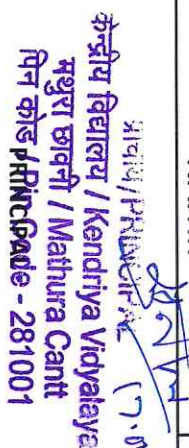 प्राचार्य/PRINCIPAL
17.0
केन्द्रीय विद्यालय / Kendriya Vidyalaya
मथुरा छावनी / Mathura Cantt
पिन कोड / Pin Code - 281001
PRINCIPAL